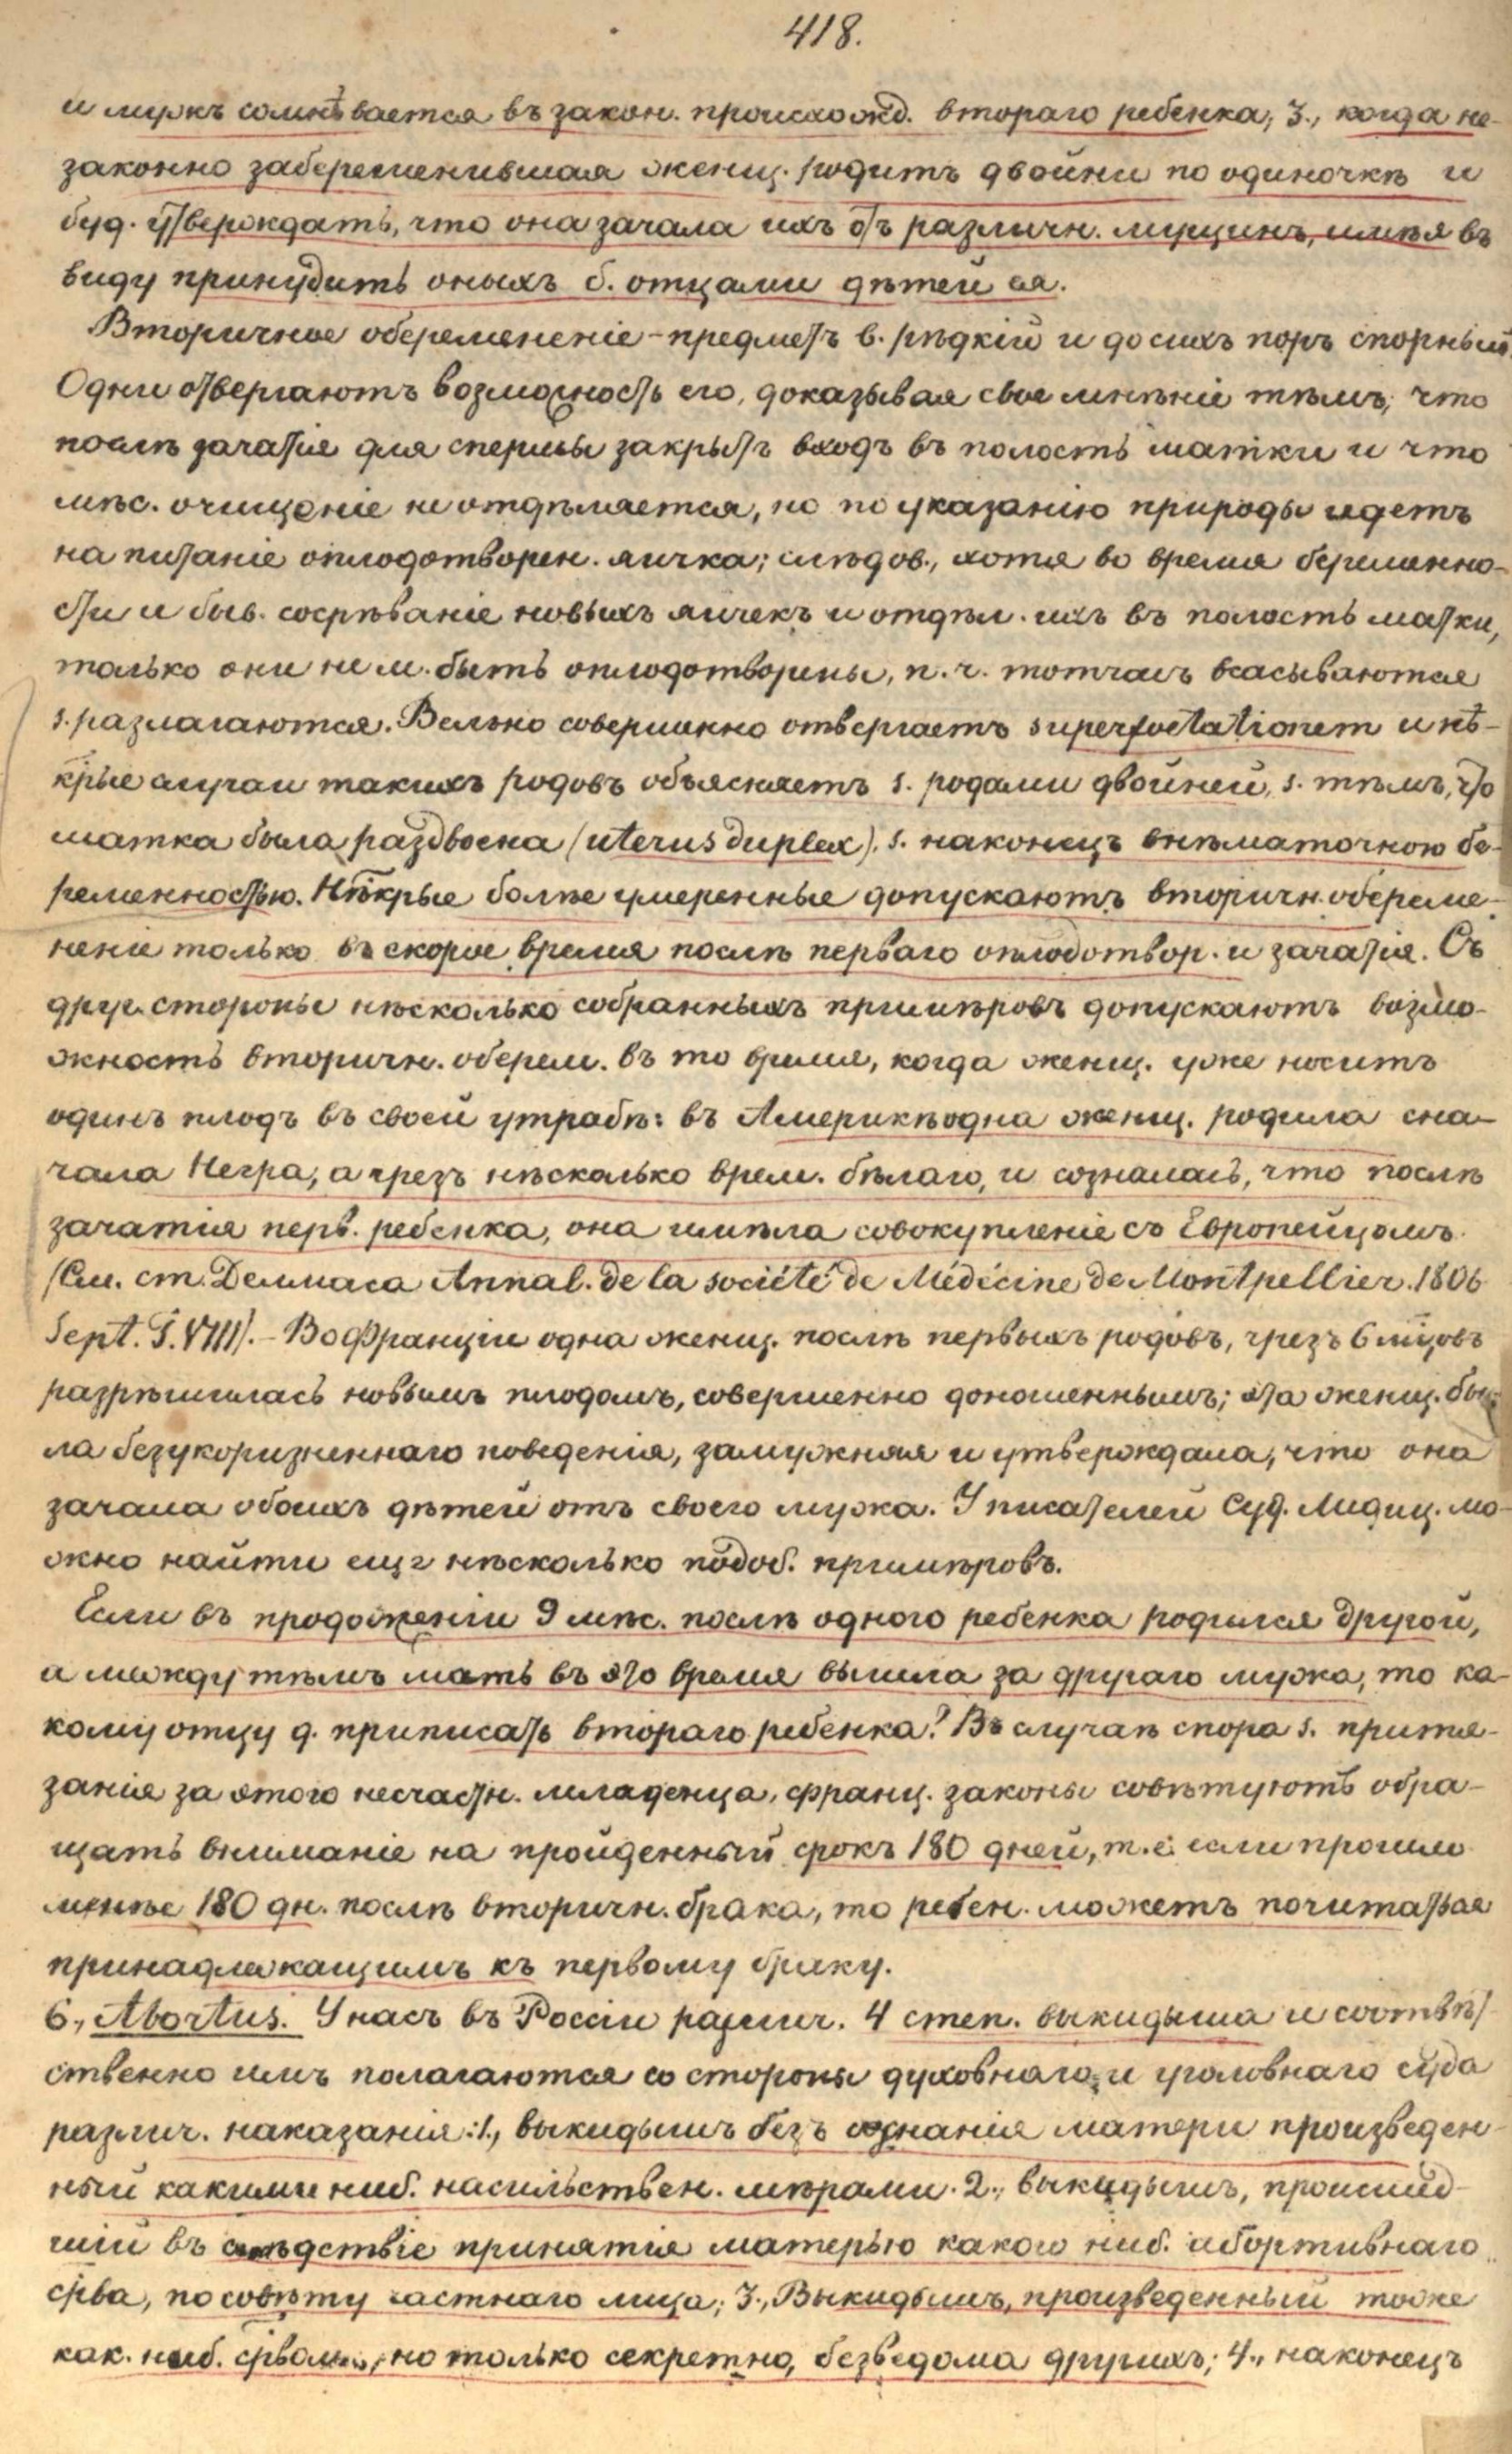 418.
и мужъ сомнѣвается въ закон. происхожд. втораго ребенка; 3., когда не-
законно забеременившая женщ. родитъ двойни по одиночкѣ и
буд. утверждать, что она зачала ихъ отъ различн. мущинъ, имѣя въ
виду принудить оныхъ б. отцами дѣтей ея.
Вторичное обеременение - предметъ в. рѣдкій и до сихъ поръ спорный
Одни отвергаютъ возможность его, доказывая свое мнѣніе тѣмъ, что
послѣ зачатія для спермы закрытъ входъ въ полость матки и что
мѣс. очищеніе не отдѣляется, но по указанію природы идетъ
на питаніе оплодотворен. яичка; слѣдов., хотя во время беременно-
сти и быв. созрѣваніе новыхъ яичекъ и отдѣл. ихъ въ полость матки,
только они не м. быть оплодотворены, п. ч. тотчасъ всасываются
s. разлагаются. Вельно совершенно отвергаетъ superfoetationem и нѣ-
крые случаи такихъ родовъ объясняетъ s. родами двойней, s. тѣмъ, что
матка была раздвоена (uterus duplex), s. наконецъ внѣматочною бе-
ременностью. Нѣкрые болѣе умеренные допускаютъ вторичн. обереме-
неніе только въ скорое время послѣ перваго оплодотвор. и зачатія. Съ
друг. стороны нѣсколько собранныхъ примѣровъ допускаютъ возмо-
жность вторичн. оберем. въ то время, когда женщ. уже носитъ
одинъ плодъ въ своей утрабѣ: въ Америкѣ одна женщ. родила сна-
чала Негра, а чрезъ нѣсколько врем. бѣлаго, и созналась, что послѣ
зачатія перв. ребенка, она имѣла совокупленіе съ Европейцомъ.
(См. ст. Делмаса Annal. de la société de Médécine de Montpellier. 1806
Sept. T. VIII). - Во Франціи одна женщ. послѣ первыхъ родовъ, чрезъ 6 мцовъ
разрѣшилась новымъ плодомъ, совершенно доношеннымъ; эта женщ. бы-
ла безукоризненнаго поведенія, замужняя и утверждала, что она
зачала обоихъ дѣтей отъ своего мужа. У писателей Суд. Медиц. мо-
жно найти еще нѣсколько подоб. примѣровъ.
Если въ продолженіи 9 мѣс. послѣ одного ребенка родился другой,
а между тѣмъ мать въ это время вышла за другаго мужа, то ка-
кому отцу д. приписать втораго ребенка? Въ случаѣ спора s. притя-
занія за этого несчастн. младенца, франц. законы совѣтуютъ обра-
щать вниманіе на пройденный срокъ 180 дней, т. е. если прошло
менѣе 180 дн. послѣ вторичн. брака, то ребен. можетъ почитаться
принадлежащимъ къ первому браку.
6., Abortus. У насъ въ Россіи различ. 4 степ. выкидыша и соотвѣт-
ственно имъ полагаются со стороны духовнаго и уголовнаго суда
различ. наказанія: 1., выкидышъ безъ сознанія матери произведен-
ный какими ниб. насильствен. мѣрами. 2., выкидышъ, происшед-
шій въ слѣдствіе принятія матерью какого ниб. абортивнаго
срва, по совѣту частнаго лица; 3., Выкидышъ, произведенный тоже
как. ниб. срвомъ, но только секретно, безъ вѣдома другихъ; 4., наконецъ